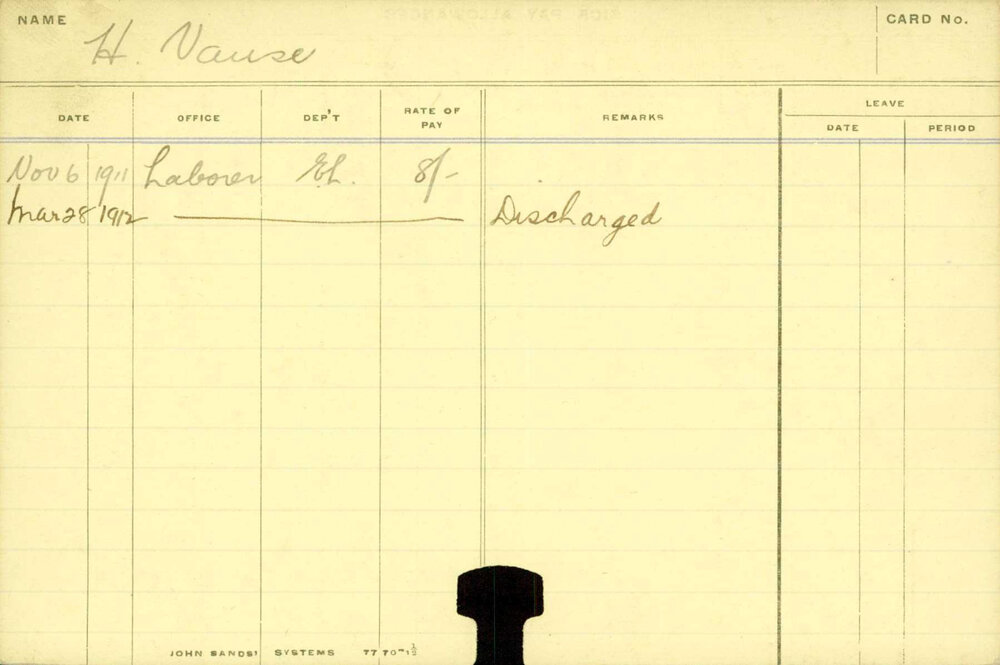 NAME H. Vause CARD No.
DATE OFFICE DEP'T RATE OF PAY REMARKS LEAVE
DATE PERIOD
Nov 6 1911 Laborer El. 8/-
Mar 28 1912 Discharged
JOHN SANDS' SYSTEMS